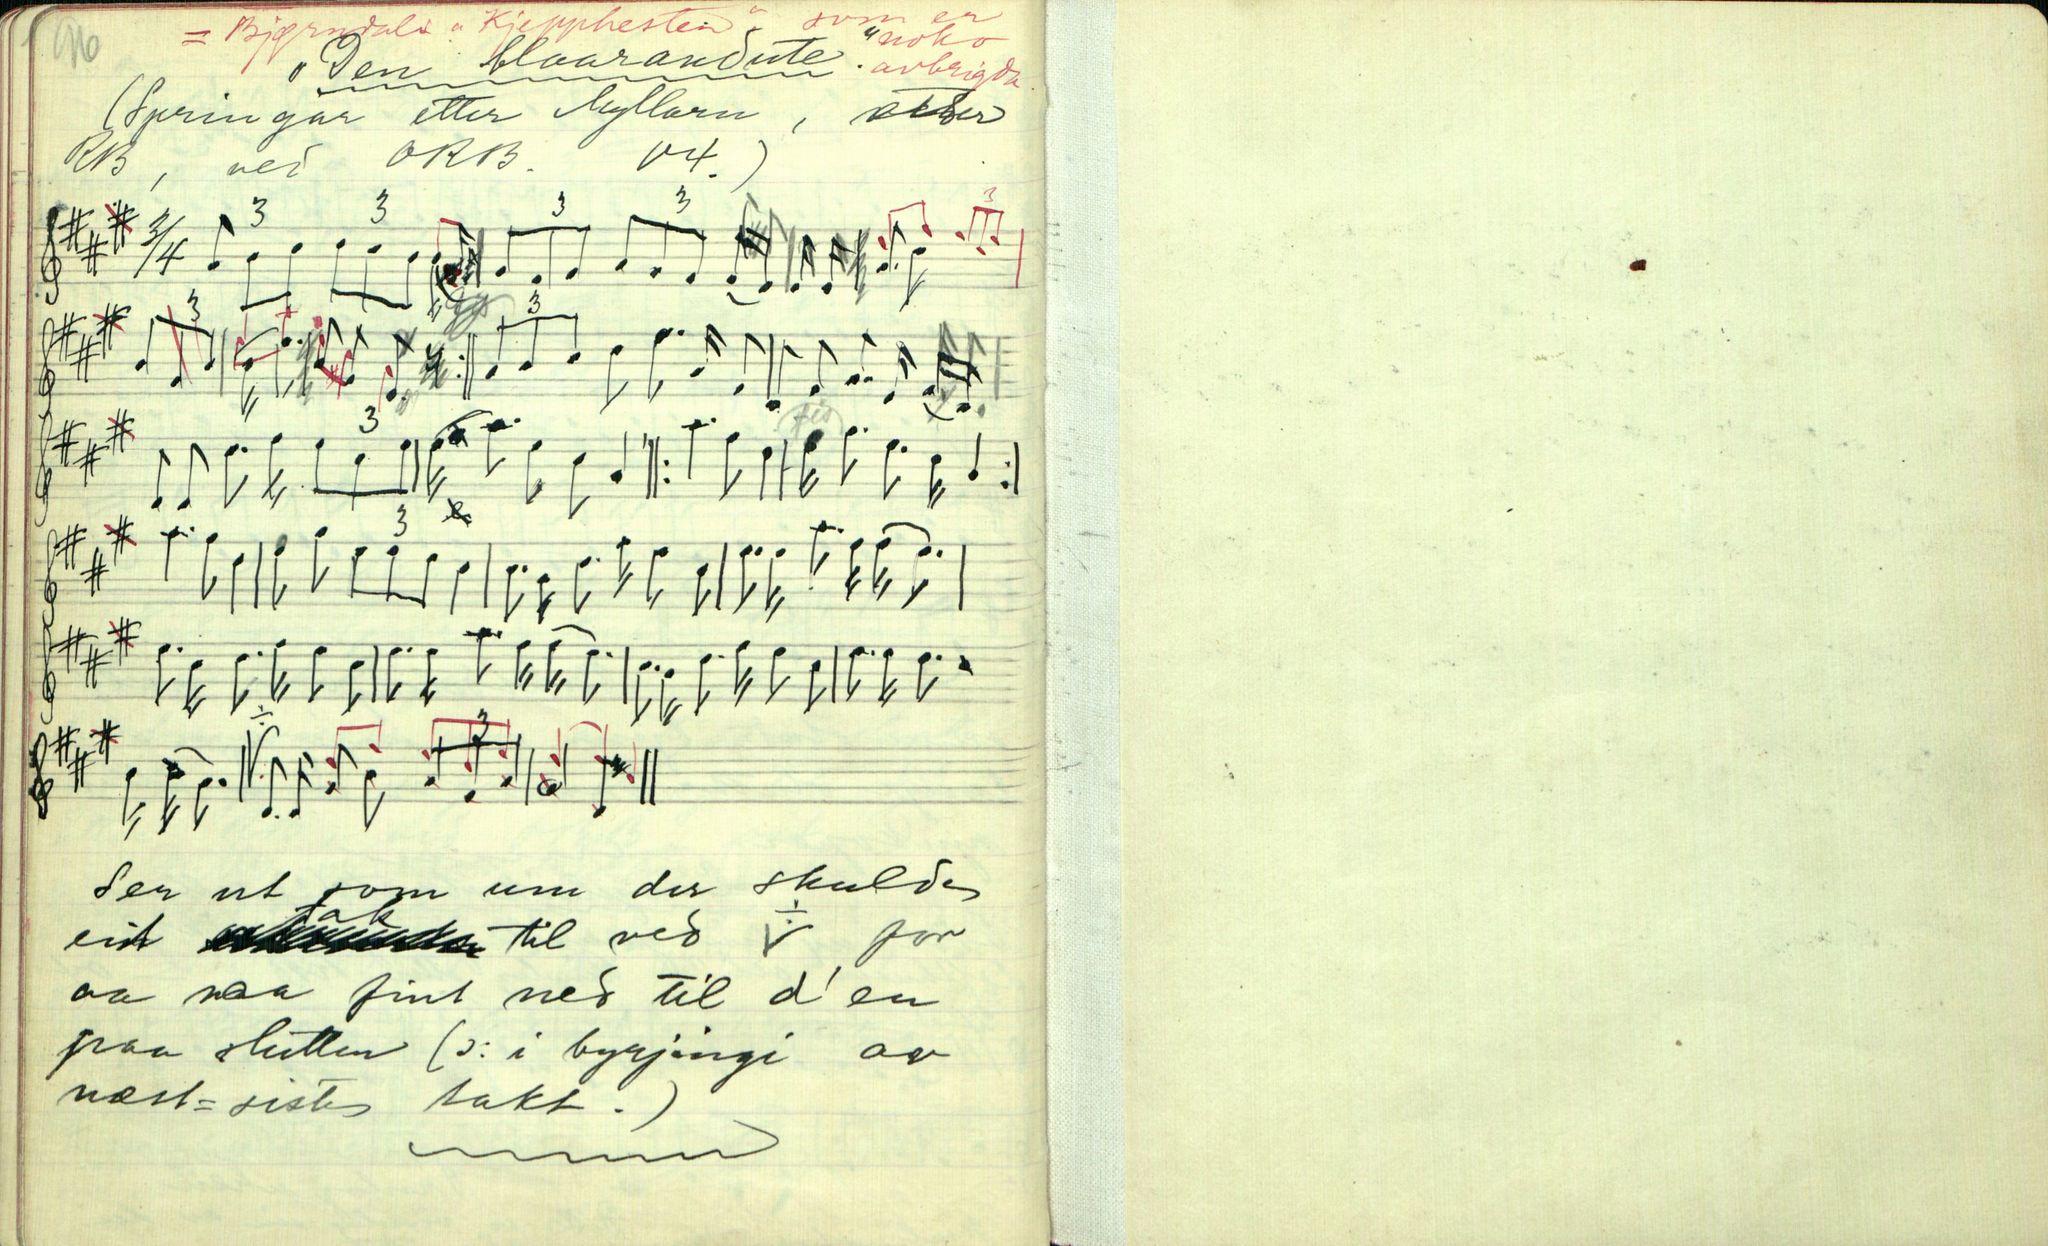 = Bjørndals "Kjepphesten", som er
noko
avbrigda
"Den blaarandute".
(Springar etter Myllarn, etter
RB, ved ORB. V4.)
3/4 3 3 3 3 3
3 3
fis
3
3
÷ 3
Ser ut som um der skulde
eit tak til ved ÷ V for
aa naa fint ned til d'en
paa slutten (ɔ: i byrjingi av
næst-siste takt.)